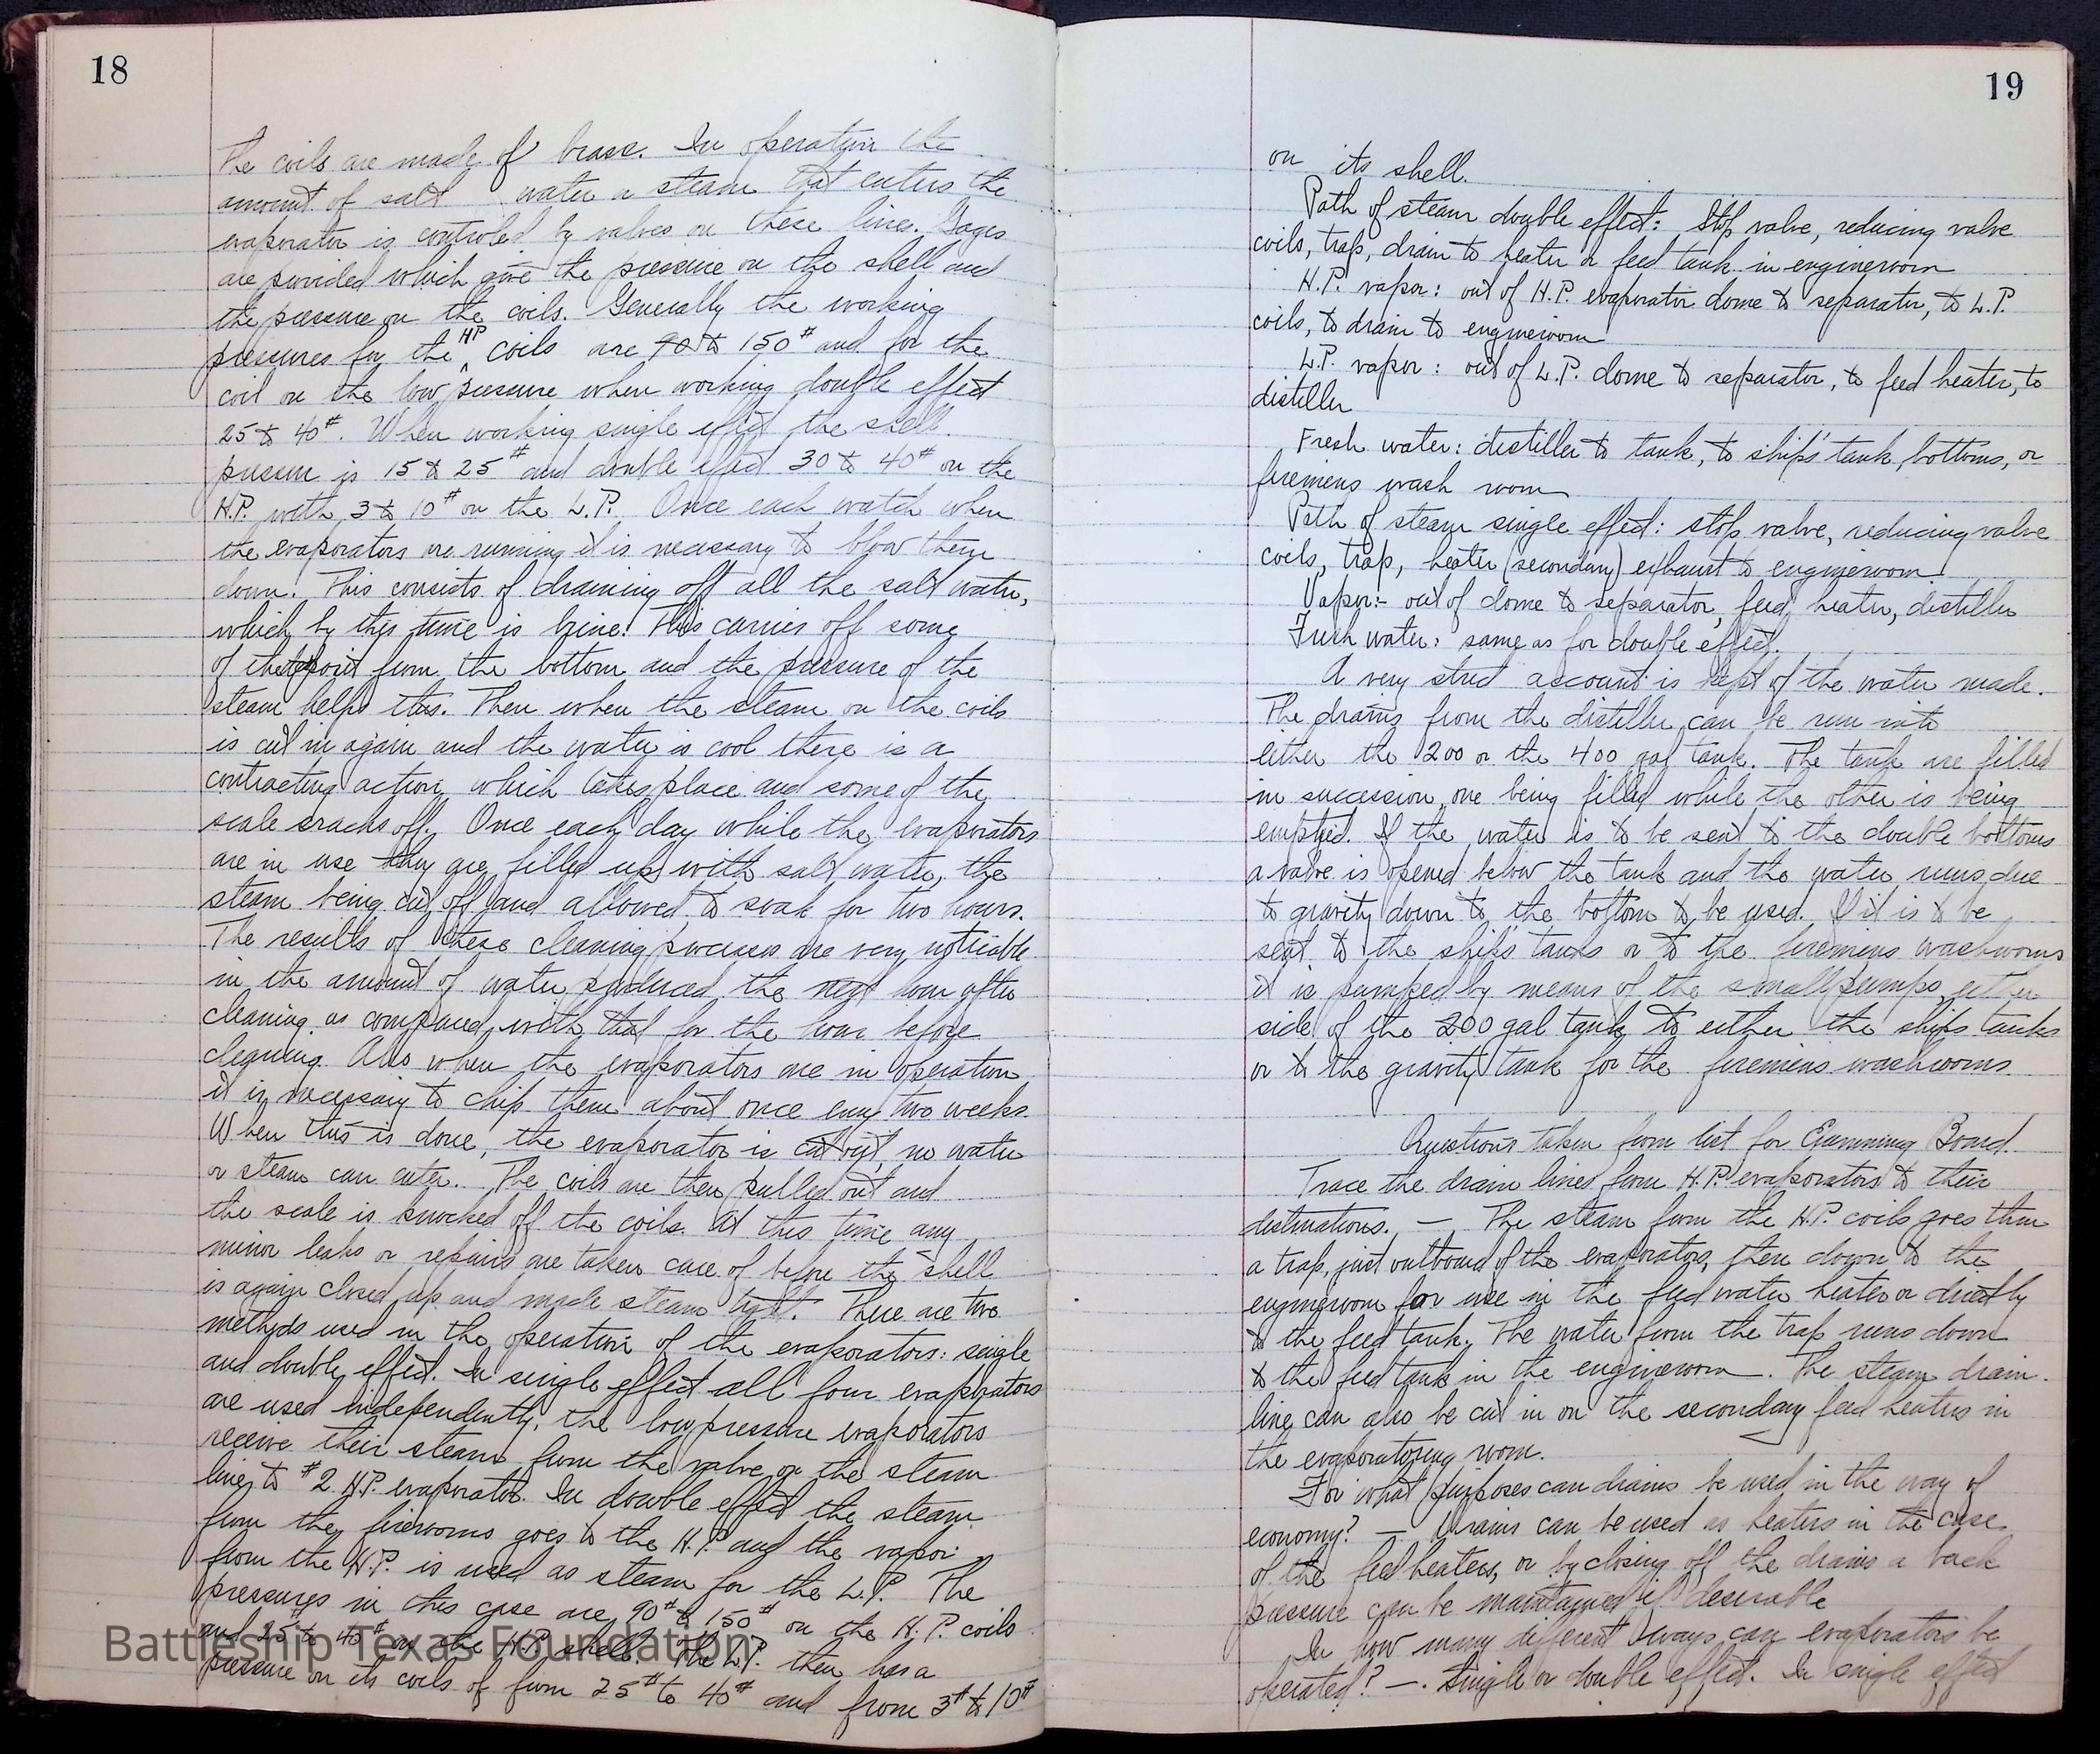 18
The coils are made of brass. In operation the
amount of salt water or steam that enters the
evaporator is controled by valves on these lines. Gages
are provided which give the pressure on the shell and
the pressure on the coils. Generally the working
pressures for the HP coils are 90 to 150# and for the
coil on the low pressure when working double effect
25 to 40#. When working single effect the shell
pressure is 15 to 25# and double effect 30 to 40# on the
H.P. with 3 to 10# on the L.P. Once each watch when
the evaporators are running it is necessary to blow them
down. This consists of draining off all the salt water,
which by this time is brine. This carries off some
of the deposit from the bottom and the pressure of the
steam helps this. Then when the steam on the coils
is cut in again and the water is cool there is a
contracting action which takes place and some of the
scale cracks off. Once each day while the evaporators
are in use they are filled up with salt water, the
steam being cut off and allowed to soak for two hours.
The results of these cleaning processes are very noticable
in the amount of water produced the next hour after
cleaning as compared with that for the hour before
cleaning. Also when the evaporators are in operation
it is necessary to chip them about once every two weeks.
When this is done, the evaporator is cut out, no water
or steam can enter. The coils are then pulled out and
the scale is knocked off the coils. At this time any
minor leaks or repairs are taken care of before the shell
is again closed up and made steam tight. There are two
methods used in the operation of the evaporators: single
and double effect. In single effect all four evaporators
are used independently, the low pressure evaporators
receive their steam from the valve on the steam
line to #2 H.P. evaporator. In double effect the steam
from the firerooms goes to the H.P. and the vapor
from the H.P. is used as steam for the L.P. The
pressures in this case are 90# to 150# on the H.P. coils
and 25# to 40# on the H.P. shell. The L.P. then has a
pressure on its coils of from 25# to 40# and from 3# to 10#
Battleship Texas Foundation
19
on its shell.
Path of steam double effect: Stop valve, reducing valve
coils, trap, drain to heater or feed tank in engineroom
H.P. vapor: out of H.P. evaporator dome to separator, to L.P.
coils, to drain to engineroom
L.P. vapor: out of L.P. dome to separator, to feed heater, to
distiller
Fresh water: distiller to tank, to ships' tank, bottoms, or
firemens wash room
Path of steam single effect: stop valve, reducing valve
coils, trap, heater (secondary) exhaust to engineroom.
Vapor:- out of dome to separator, feed heater, distiller
Fresh water: same as for double effect.
A very strict account is kept of the water made.
The drains from the distiller can be run into
either the 200 or the 400 gal tank. The tank are filled
in succession, one being filled while the other is being
emptied. If the water is to be sent to the double bottoms
a valve is opened below the tank and the water runs due
to gravity down to the bottom to be used. If it is to be
sent to the ships' tanks or to the firemens washrooms
it is pumped by means of the small pumps either
side of the 200 gal tank to either the ships tanks
or to the gravity tank for the firemens washrooms.
Questions taken from list for Examining Board.
Trace the drain lines from H.P. evaporators to their
destinations. — The steam from the H.P. coils goes thru
a trap, just outboard of the evaporators, then down to the
engineroom for use in the feed water heater or directly
to the feed tank. The water from the trap runs down
to the feed tank in the engineroom. The steam drain
line can also be cut in on the secondary feed heaters in
the evaporatoring room.
For what purposes can drains be used in the way of
economy? — Drains can be used as heaters in the case
of the feed heaters, or by closing off the drains a back
pressure can be maintained if desirable
In how many different ways can evaporators be
operated? —. Single or double effect. In single effect